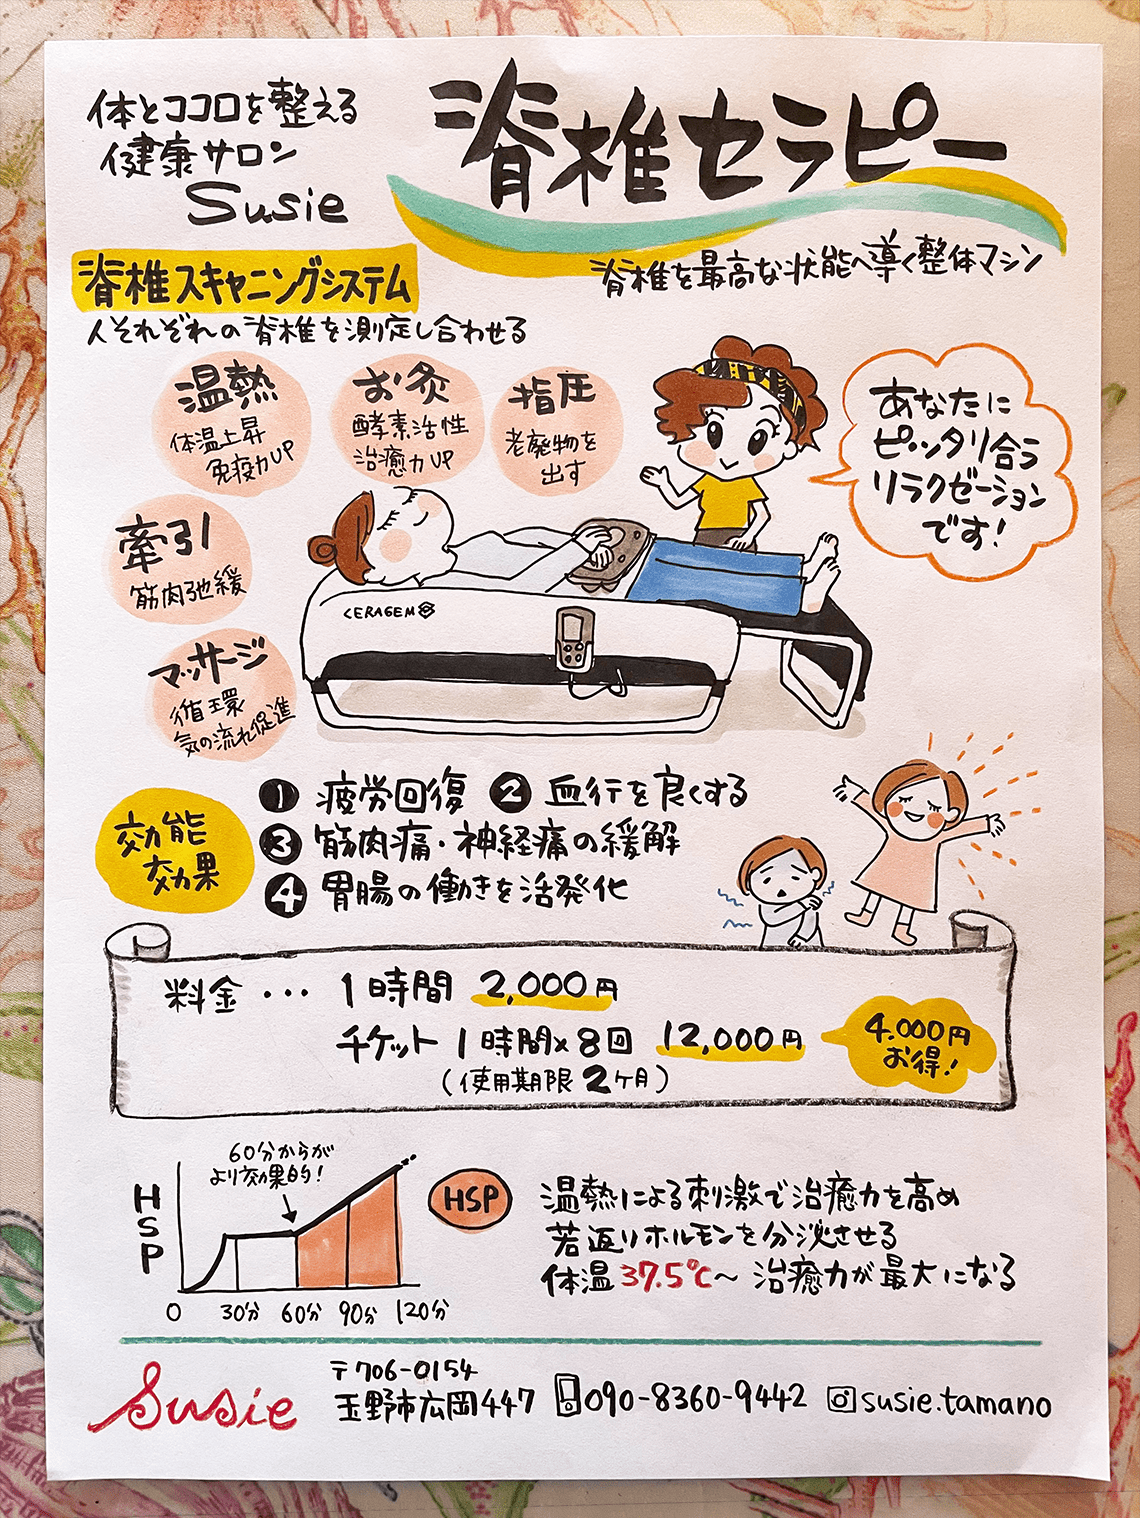 体とココロを整える
健康サロン
Susie
脊椎セラピー
脊椎を最高な状態へ導く整体マシン
脊椎スキャニングシステム
人それぞれの脊椎を測定し合わせる
温熱
体温上昇
免疫力UP
お灸
酵素活性
治癒力UP
指圧
老廃物を
出す
牽引
筋肉弛緩
マッサージ
循環
気の流れ促進
あなたに
ピッタリ合う
リラクゼーション
です!
CERAGEM
効能
効果
① 疲労回復 ② 血行を良くする
③ 筋肉痛・神経痛の緩解
④ 胃腸の働きを活発化
料金・・・ 1時間 2,000円
チケット 1時間×8回 12,000円
(使用期限 2ヶ月)
4,000円
お得!
60分からが
より効果的!
HSP
0 30分 60分 90分 120分
HSP
温熱による刺激で治癒力を高め
若返りホルモンを分泌させる
体温37.5℃~ 治癒力が最大になる
Susie
〒706-0154
玉野市広岡447
090-8360-9442
susie.tamano